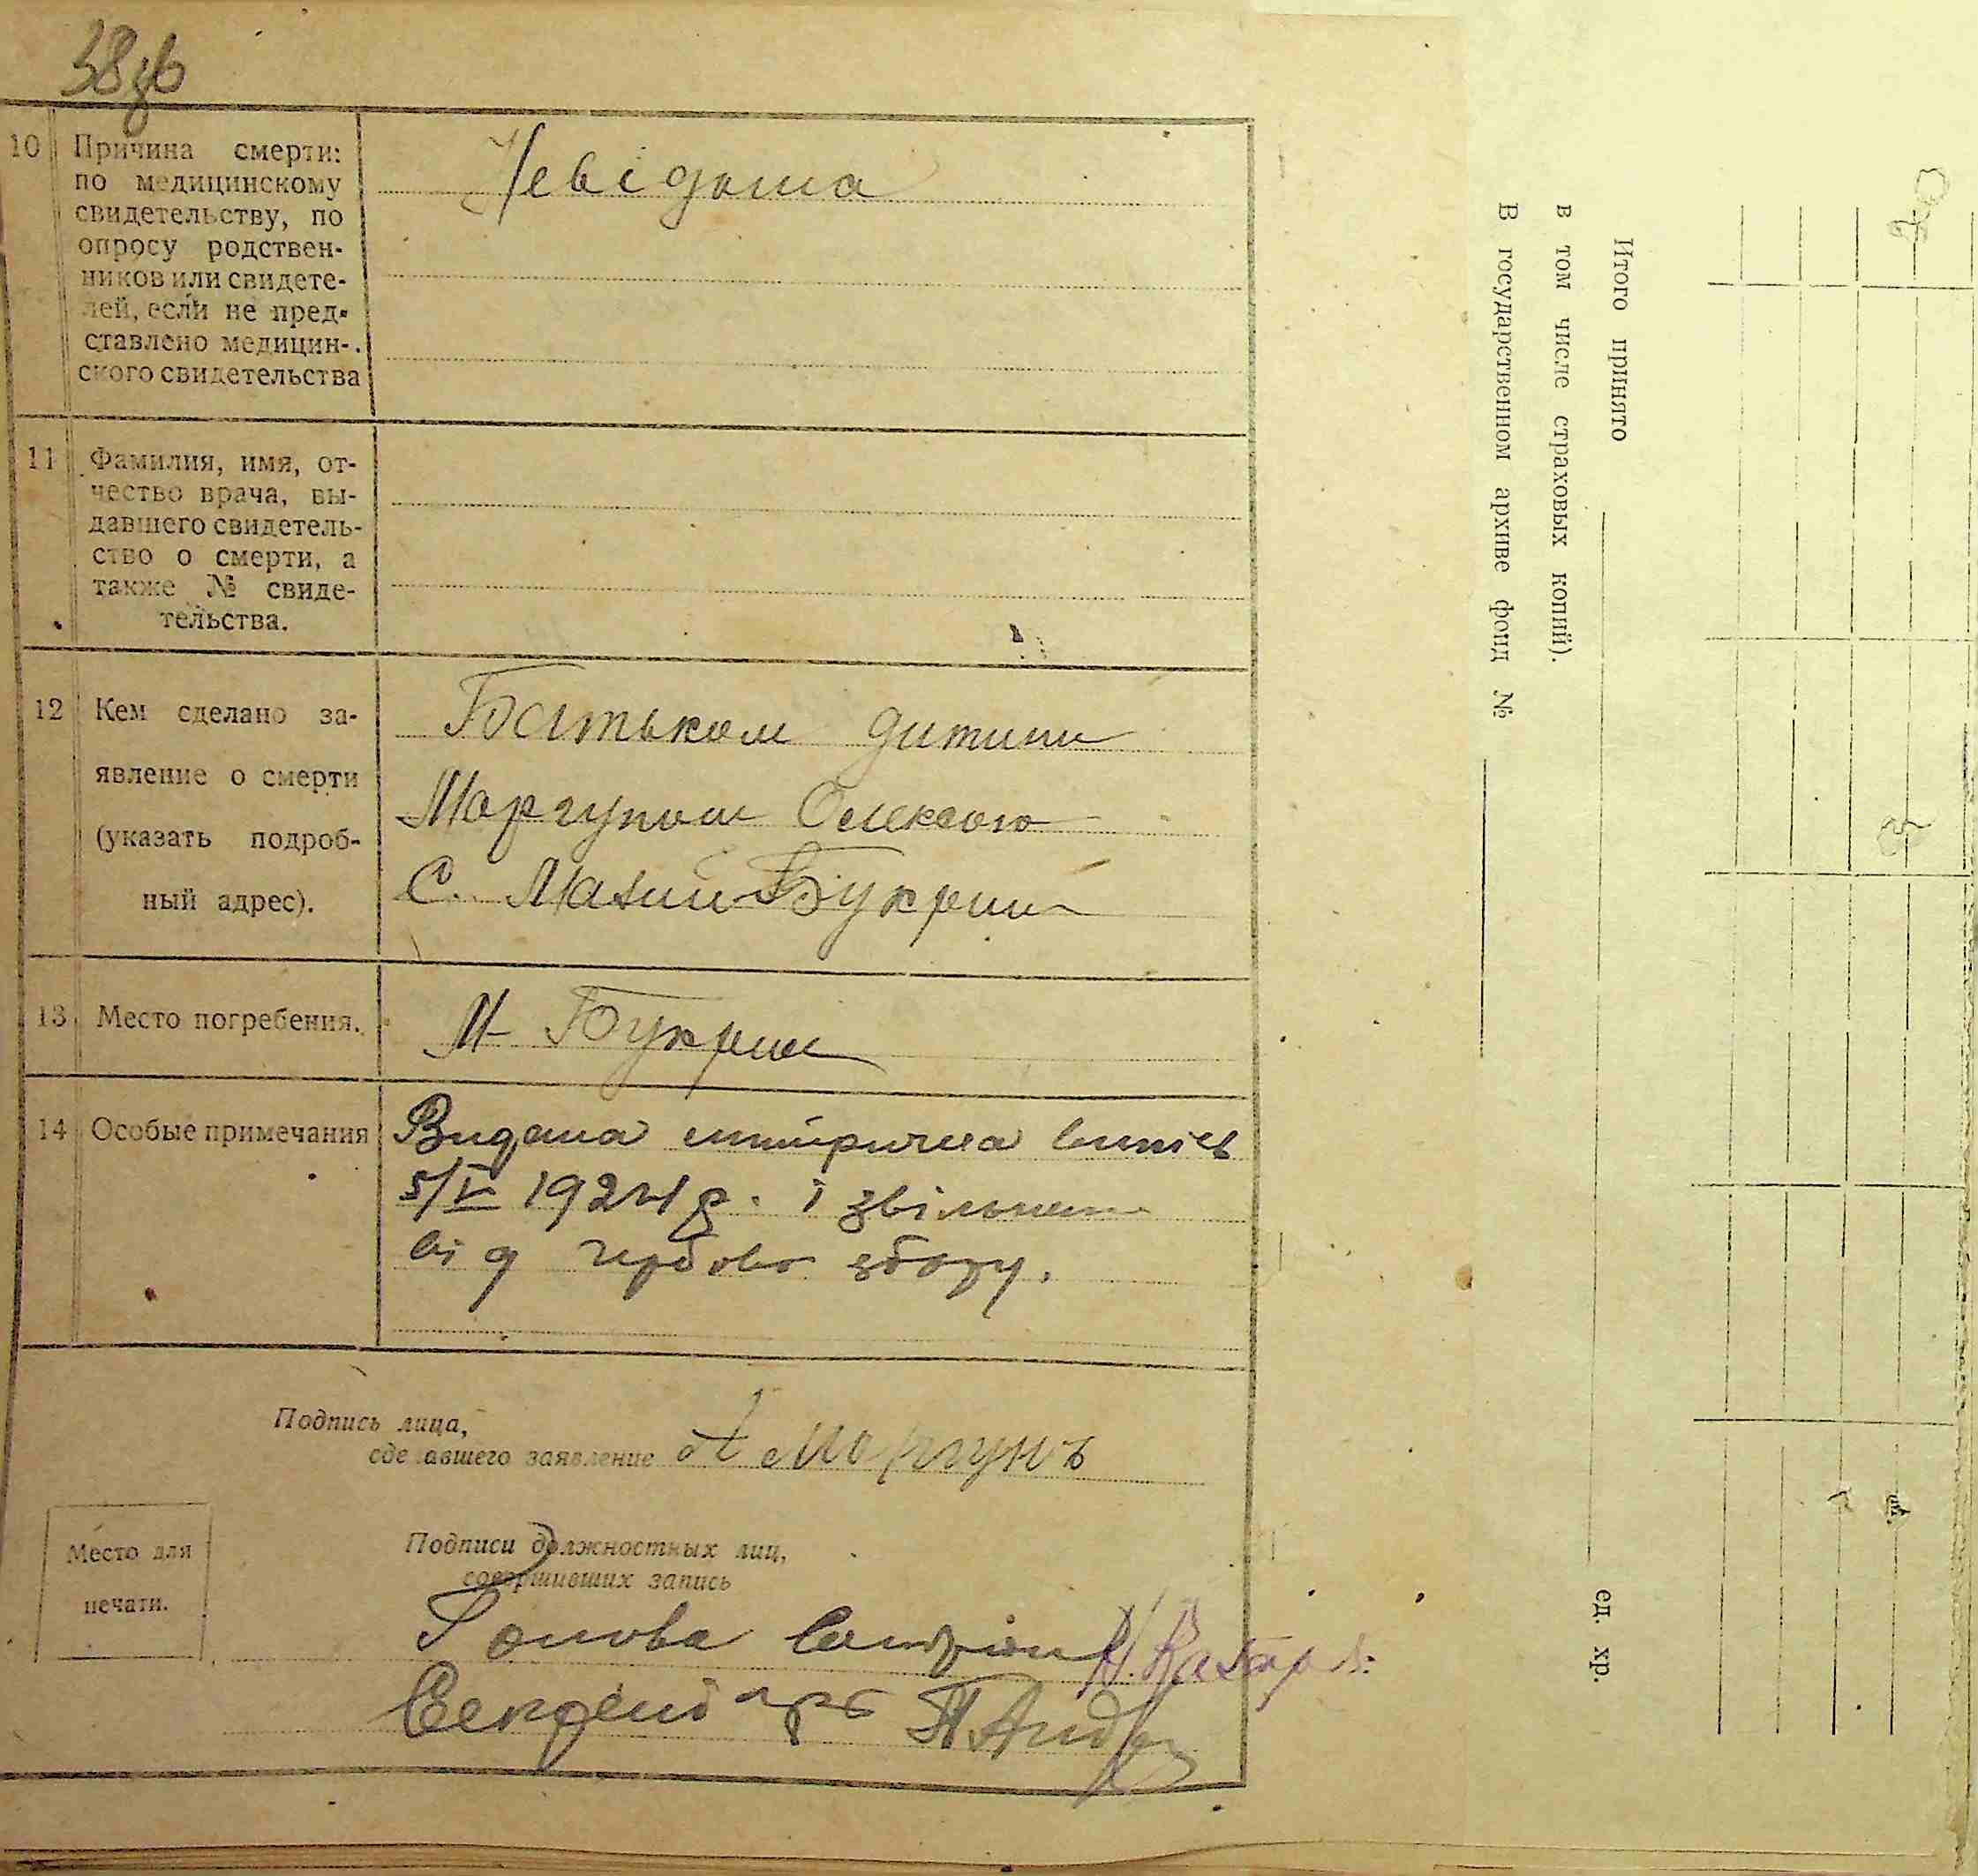 38зв
10 Причина смерти:
по медицинскому
свидетельству, по
опросу родствен-
ников или свидете-
лей, если не пред-
ставлено медицин-
ского свидетельства
Невідома
11 Фамилия, имя, от-
чество врача, вы-
давшего свидетель-
ство о смерти, а
также № свиде-
тельства.
12 Кем сделано за-
явление о смерти
(указать подроб-
ный адрес).
Батьком дитини
Моргуном Олексою
С. Малий Букрин
13 Место погребения.
М Букрин
14 Особые примечания
Видана випис
5/V 1924 р. і звільнен
від гербово збору.
Подпись лица,
сде авшего заявление А Моргунъ
Место для
печати.
Подписи должностных лиц,
совершивших запись
Голова
Секретарь
Итого принято
ед. хр.
в том числе страховых копий).
В государственном архиве фонд №